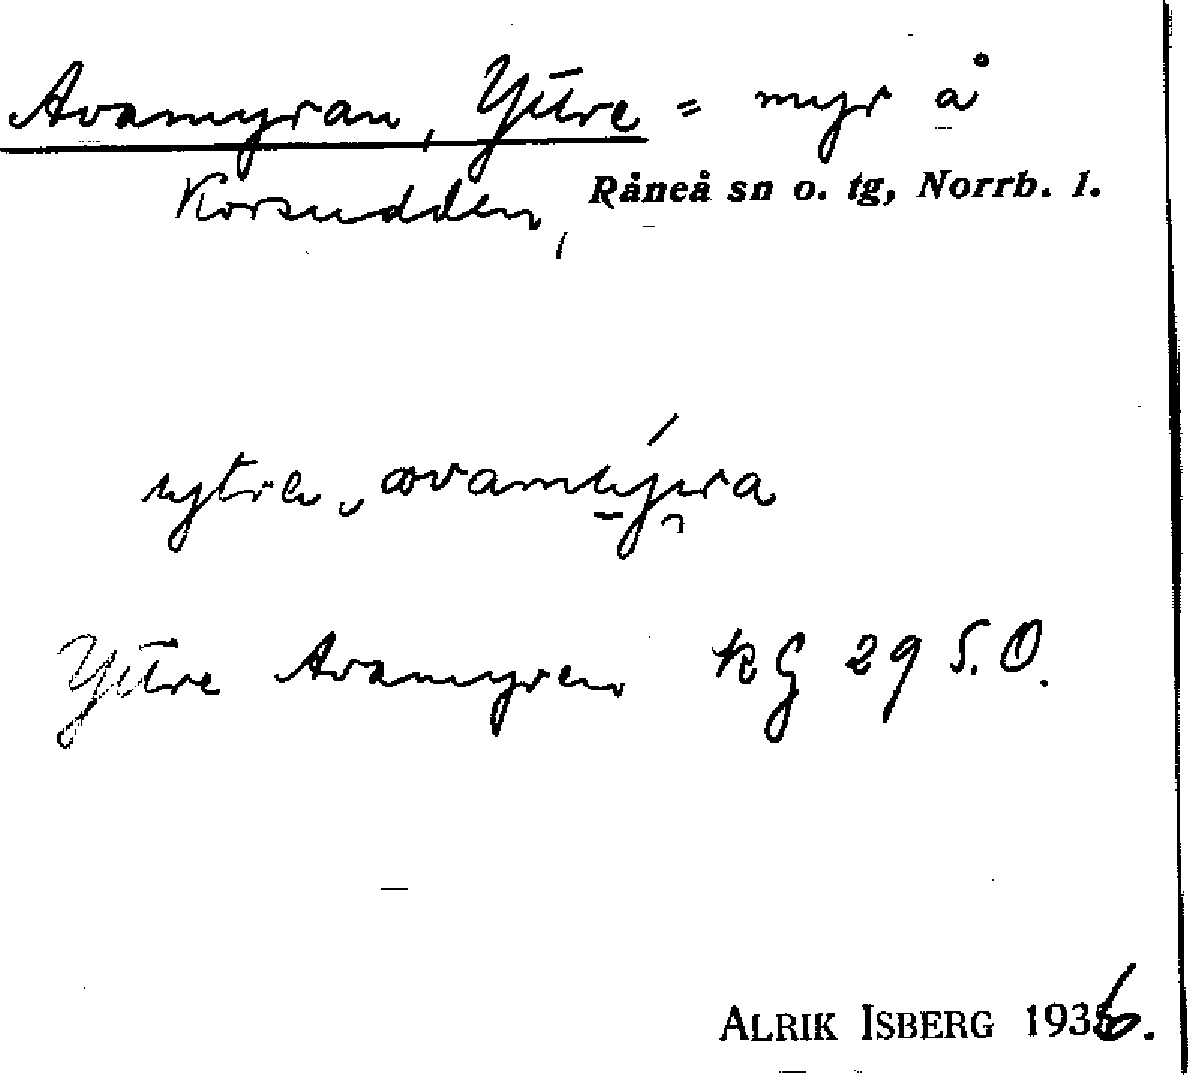 Avamyran, Yttre = myr å
Korsudden, Råneå sn o. tg, Norrb. l.
Yttre Avamyren KG 29 S.O.
ALRIK ISBERG 1936.